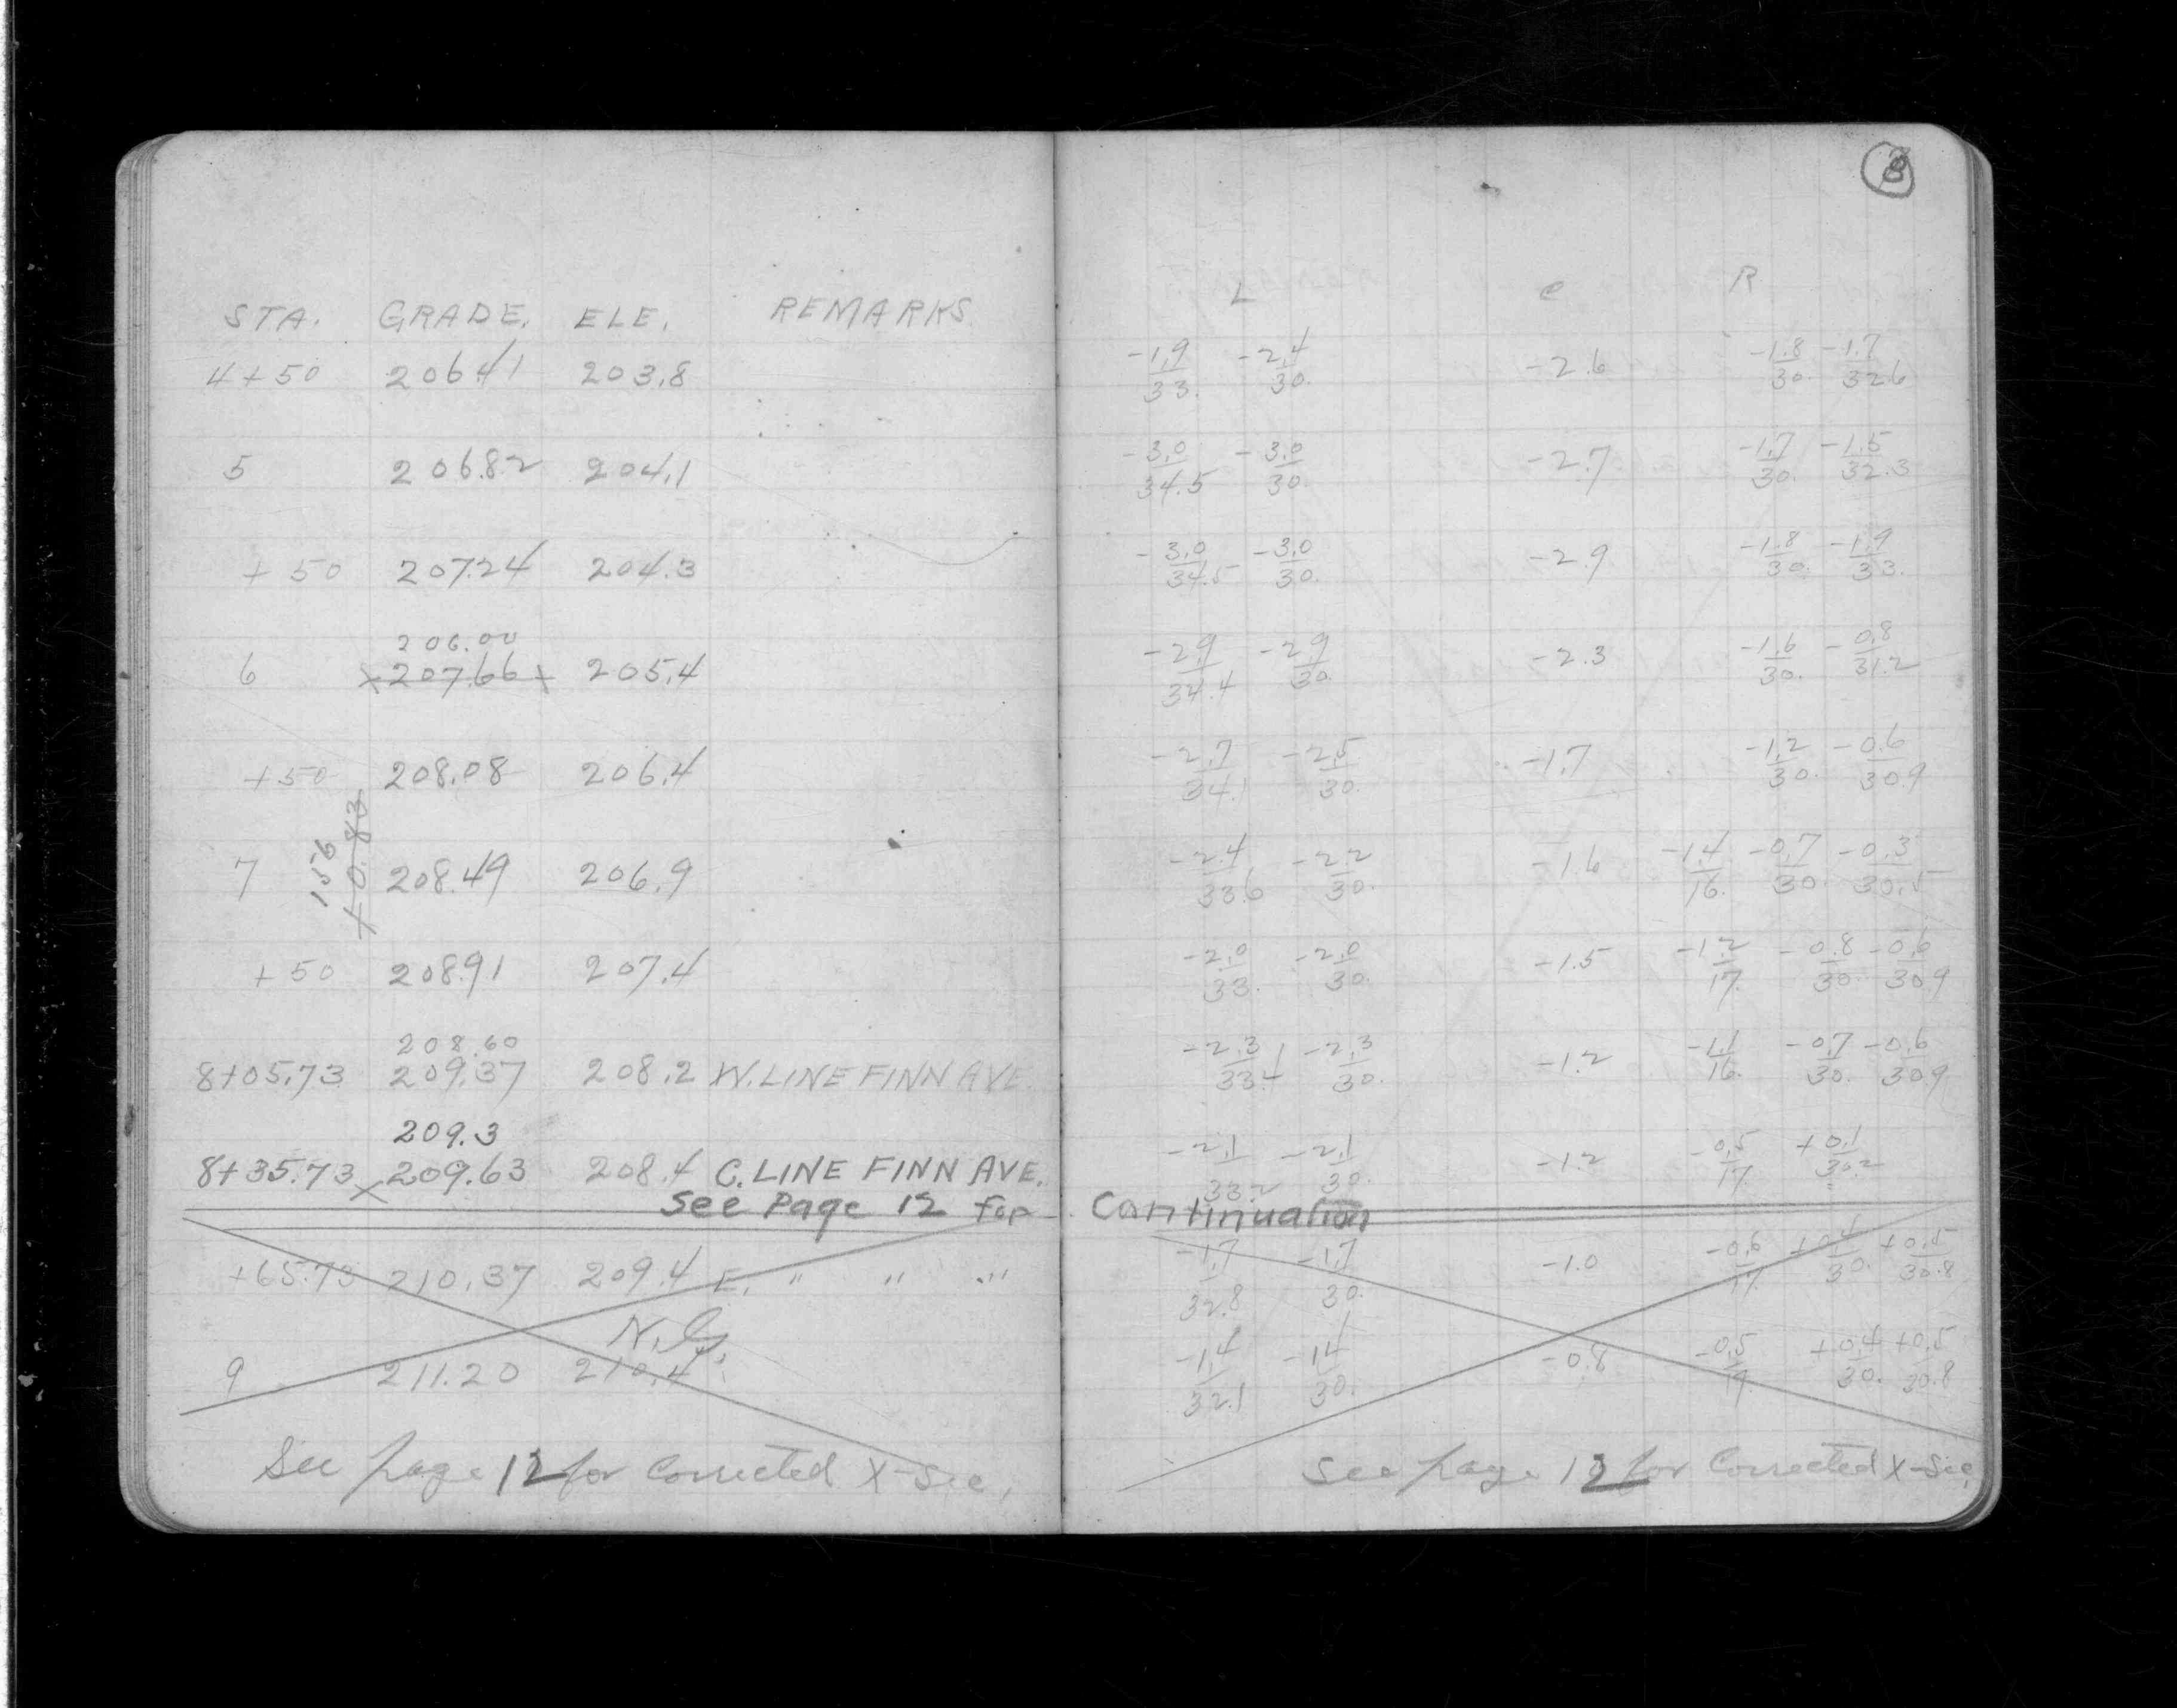 STA. GRADE. ELE. REMARKS
4+50 206.41 203.8
5 206.82 204.1
+50 207.24 204.3
206.00
6 x207.66x 205.4
+50 208.08 206.4
7 208.49 206.9
156
+0.83
+50 208.91 207.4
208.60
8+05.73 209.37 208.2 W. LINE FINN AVE
209.3
8+35.73 x 209.63 208.4 C. LINE FINN AVE.
See Page 12 For
+65.73 210.37 209.4 E. " " "
N.G.
9 211.20 210.4
See page 12 for Corrected X-Sec.
L C R
-1.9/33. -2.4/30. -2.6 -1.8/30. -1.7/32.6
-3.0/34.5 -3.0/30. -2.7 -1.7/30. -1.5/32.3
-3.0/34.5 -3.0/30. -2.9 -1.8/30. -1.9/33.
-2.9/34.4 -2.9/30. -2.3 -1.6/30. -0.8/31.2
-2.7/34.1 -2.5/30. -1.7 -1.2/30. -0.6/30.9
-2.4/33.6 -2.2/30. -1.6 -1.4/16. -0.7/30. -0.3/30.5
-2.0/33. -2.0/30. -1.5 -1.2/17. -0.8/30. -0.6/30.9
-2.3/33.4 -2.3/30. -1.2 -1.1/16. -0.7/30. -0.6/30.9
-2.1/33.2 -2.1/30. -1.2 -0.5/17. +0.1/30.2
Continuation
-1.7/32.8 -1.7/30. -1.0 -0.6/17. +0.4/30. +0.5/30.8
-1.4/32.1 -1.4/30. -0.8 -0.5/17. +0.4/30. +0.5/30.8
See page 12 for Corrected X-Sec.